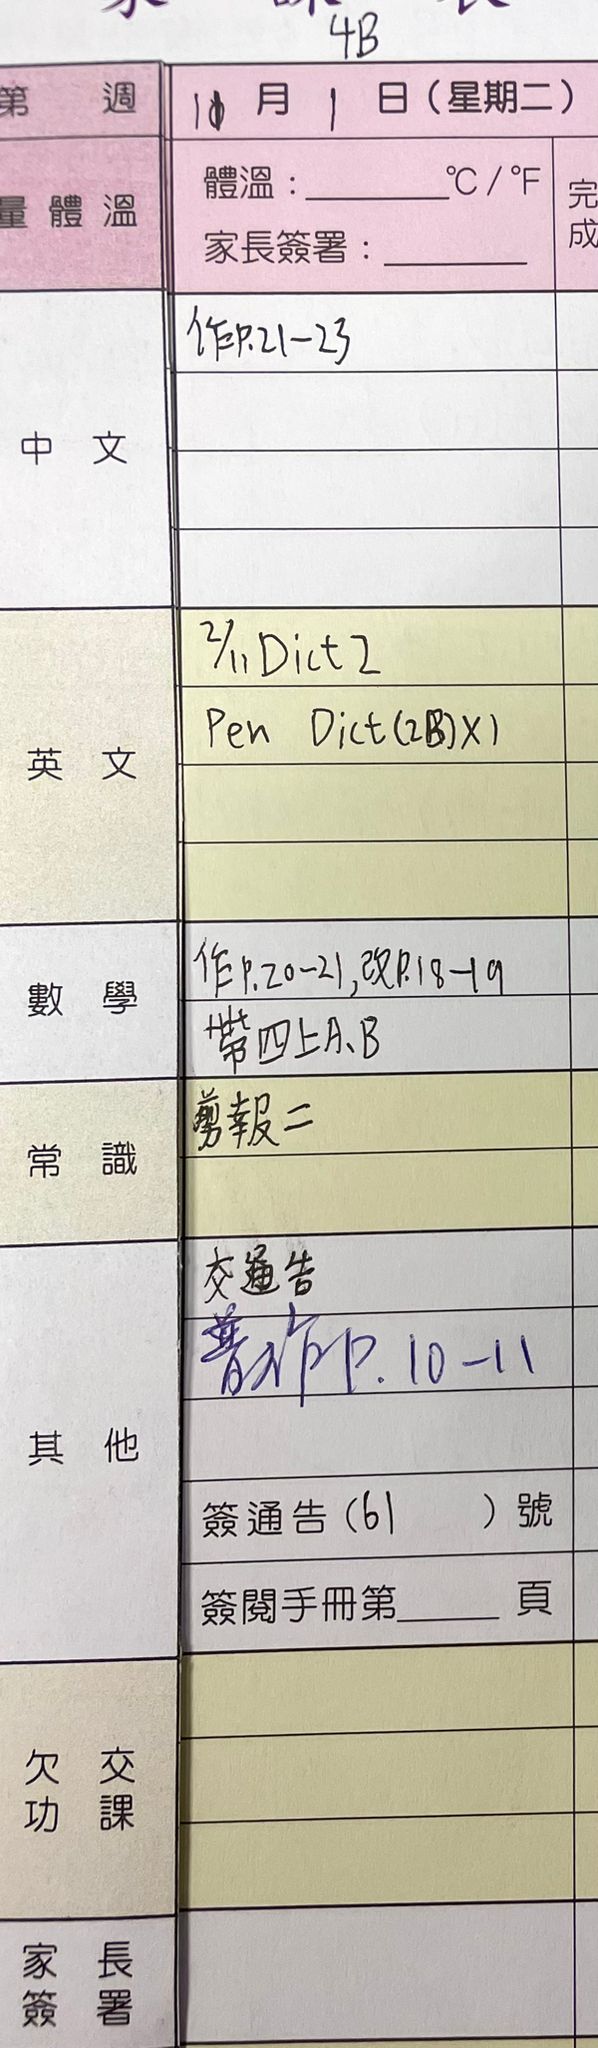 家 課 表
4B
第 週 11 月 1 日(星期二)
量體溫 體溫:________°C / °F 完成
家長簽署:________
中 文
作P.21-23
英 文
2/11 Dict 2
Pen Dict(2B)X1
數 學
作P.20-21,改P.18-19
帶四上A、B
常 識
剪報二
其 他
交通告
普作P.10-11
簽通告(61 )號
簽閱手冊第_____ 頁
欠 交
功 課
家 長
簽 署